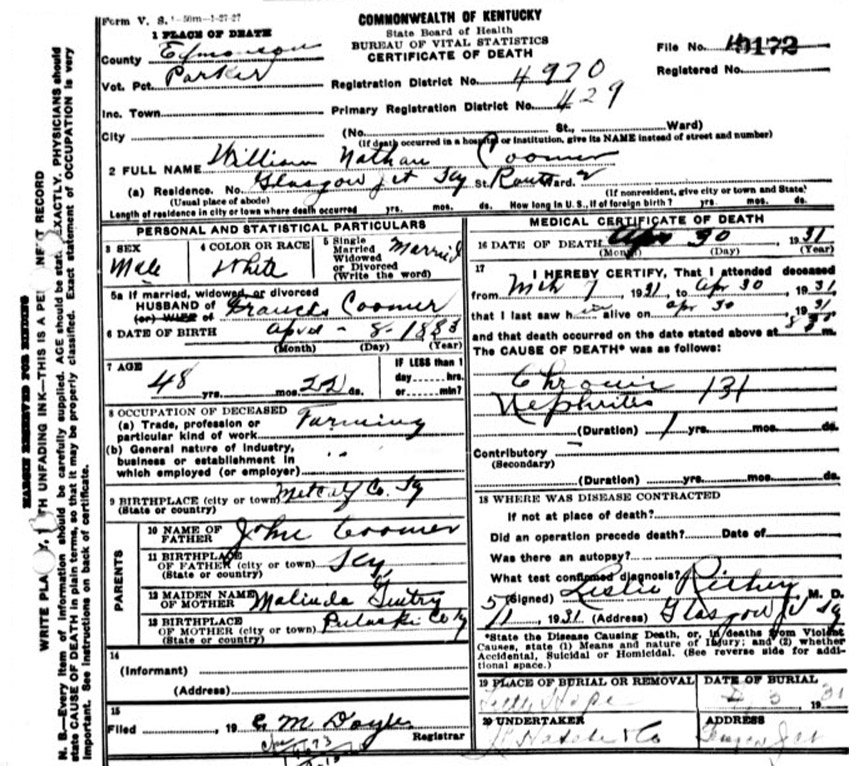 Form V. S. 1-50m-1-27-27
COMMONWEALTH OF KENTUCKY
State Board of Health
BUREAU OF VITAL STATISTICS
CERTIFICATE OF DEATH
File No. 10172
Registered No.
1 PLACE OF DEATH
County Edmonson
Vot. Pct. Parker
Registration District No. 4970
Inc. Town
Primary Registration District No. 429
City (No. St., Ward)
(If death occurred in a hospital or institution, give its NAME instead of street and number)
2 FULL NAME William Nathan Coomer
(a) Residence. No. Glasgow Jct Ky St. Route Ward. 2
(Usual place of abode) (If nonresident, give city or town and State)
Length of residence in city or town where death occurred yrs. mos. ds. How long in U. S., if of foreign birth? yrs. mos. ds.
PERSONAL AND STATISTICAL PARTICULARS
3 SEX Male
4 COLOR OR RACE White
5 Single Married Widowed or Divorced (Write the word) Married
5a If married, widowed, or divorced
HUSBAND of Francis Coomer
(or) WIFE of
6 DATE OF BIRTH April - 8 - 1883
(Month) (Day) (Year)
7 AGE 48 yrs. mos. 22 ds.
IF LESS than 1 day hrs. or min?
8 OCCUPATION OF DECEASED
(a) Trade, profession or particular kind of work Farming
(b) General nature of industry, business or establishment in which employed (or employer) " "
9 BIRTHPLACE (city or town) Metcalf Co. Ky
(State or country)
PARENTS
10 NAME OF FATHER John Coomer
11 BIRTHPLACE OF FATHER (city or town) Ky
(State or country)
12 MAIDEN NAME OF MOTHER Malinda Gentry
13 BIRTHPLACE OF MOTHER (city or town) Pulaski Co Ky
(State or country)
14
(Informant)
(Address)
15
Filed , 19 C M Doyle
Registrar
MEDICAL CERTIFICATE OF DEATH
16 DATE OF DEATH Apr 30, 1931
(Month) (Day) (Year)
17 I HEREBY CERTIFY, That I attended deceased
from Mch 7, 1931, to Apr 30, 1931
that I last saw him alive on Apr 30, 1931
and that death occurred on the date stated above at m.
The CAUSE OF DEATH* was as follows:
Chronic 131
Nephritis
(Duration) 1 yrs. mos. ds.
Contributory
(Secondary)
(Duration) yrs. mos. ds.
18 WHERE WAS DISEASE CONTRACTED
If not at place of death?
Did an operation precede death? Date of
Was there an autopsy?
What test confirmed diagnosis?
(Signed) Leslie M. D.
5/1, 1931 (Address) Glasgow Jc Ky
*State the Disease Causing Death, or, in deaths from Violent
Causes, state (1) Means and nature of Injury; and (2) whether
Accidental, Suicidal or Homicidal. (See reverse side for addi-
tional space.)
19 PLACE OF BURIAL OR REMOVAL Hope
DATE OF BURIAL 3, 1931
20 UNDERTAKER & Co
ADDRESS Jct
MARGIN RESERVED FOR BINDING
WRITE PLAINLY, WITH UNFADING INK—THIS IS A PERMANENT RECORD
N. B.—Every item of information should be carefully supplied. AGE should be stated EXACTLY. PHYSICIANS should
state CAUSE OF DEATH in plain terms, so that it may be properly classified. Exact statement of OCCUPATION is very
important. See instructions on back of certificate.